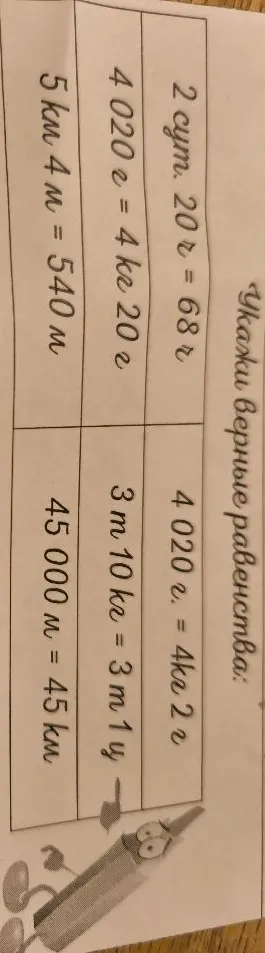 Укажи верные равенства:
2 сут. 20 ч = 68 ч
4 020 г. = 4кг 2 г
4 020 г = 4 кг 20 г
3 т 10 кг = 3 т 1 ц
5 км 4 м = 540 м
45 000 м = 45 км